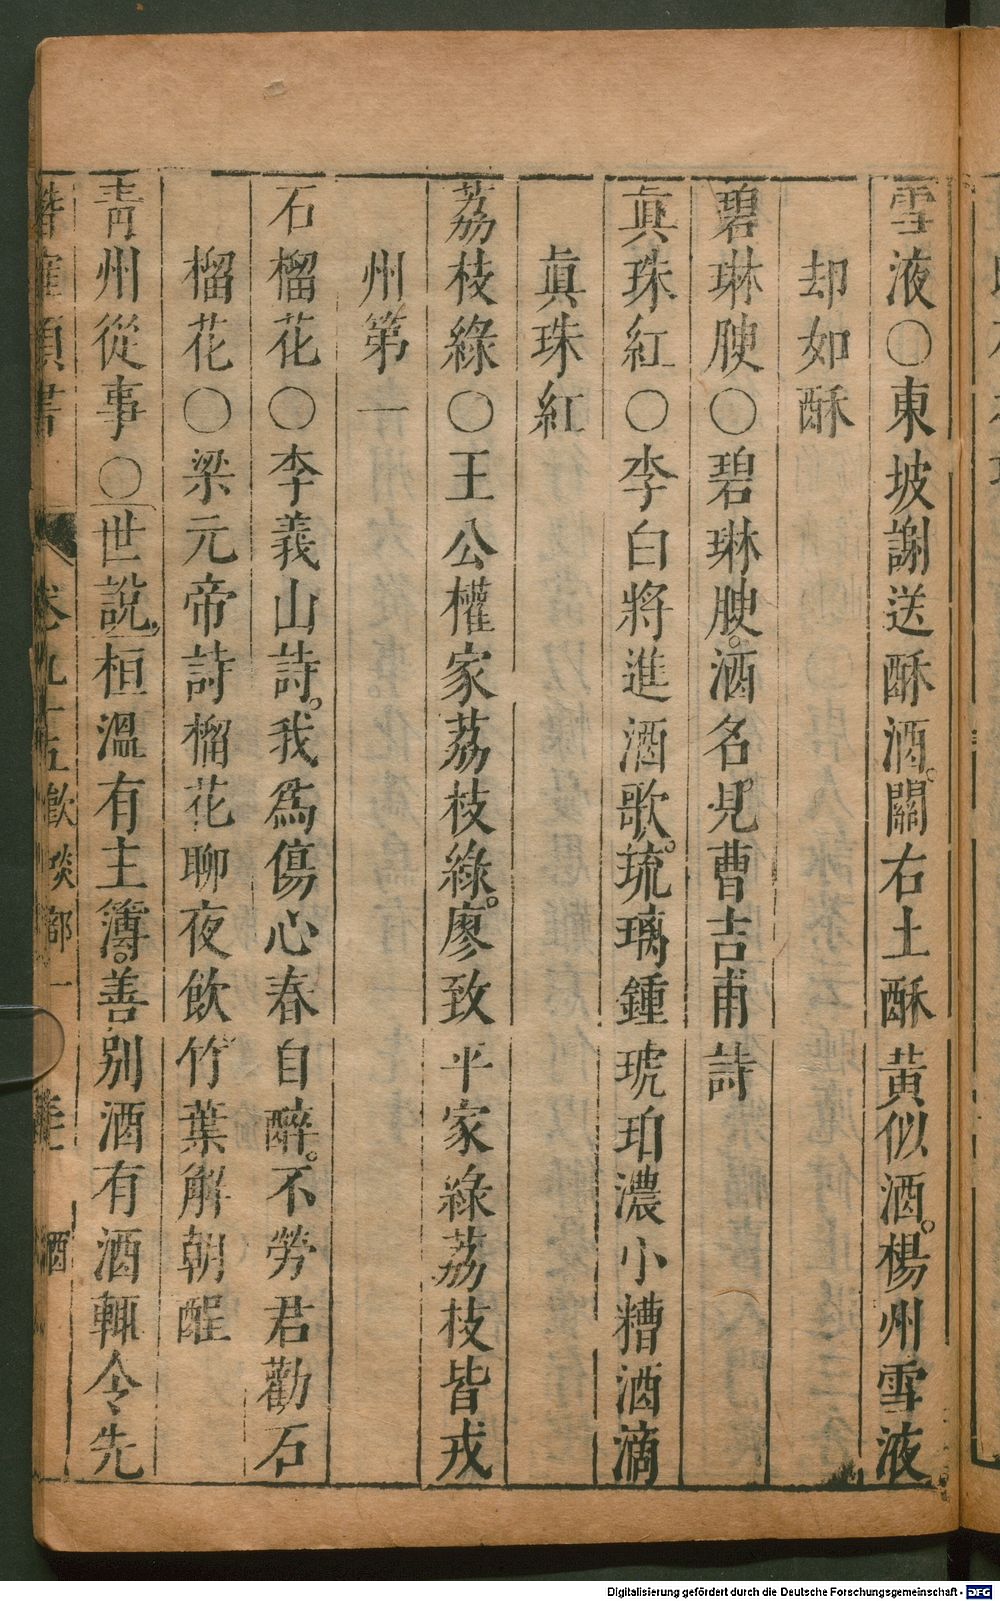 雪液○東坡謝送酥酒關右土酥黃似酒楊州雪液
却如酥
碧琳腴○碧琳腴酒名見曹吉甫詩
眞珠紅○李白將進酒歌琉璃鍾琥珀濃小糟酒滴
眞珠紅
荔枝綠○王公權家荔枝綠廖致平家綠荔枝皆戎
州第一
石榴花○李義山詩我爲傷心春自醉不勞君勸石
榴花○梁元帝詩榴花聊夜飮竹葉解朝酲
靑州從事○世說桓溫有主簿善別酒有酒輒令先
潛確類書 卷九十五飮啖部一 酒
Digitalisierung gefördert durch die Deutsche Forschungsgemeinschaft - DFG